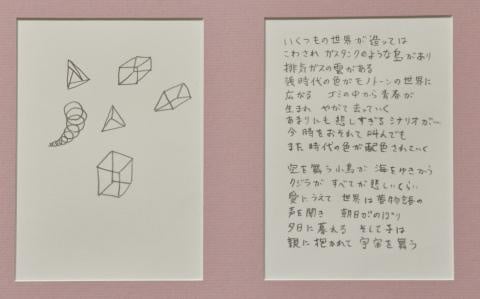 いくつもの世界が造っては
こわされ ガスタンクのような島があり
排気ガスの雲がある
時代の色がモノトーンの世界に
広がる ゴミの中から青春が
生まれ やがて去っていく
あまりにも悲しすぎるシナリオが
今 時をおそれて 叫んでも
また 時代の色が配色されていく
空を舞う小鳥が 海をゆきかう
クジラが すべてが悲しいくらい
愛にうえて 世界は夢物語の
声を聞き 朝日がのぼり
夕日に暮える そして子は
親に抱かれて 宇宙を舞う